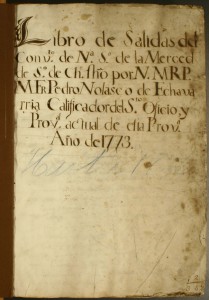 Libro de Salidas del
Conv.to de N.a S.a de la Merced
de S.n de Ch. fho por N. M. R. P.
M. Fr. Pedro Nolasco de Echavar
rria Calificador del S.to Oficio y
Prov.l actual de esta Prov.a
Año de 1773.